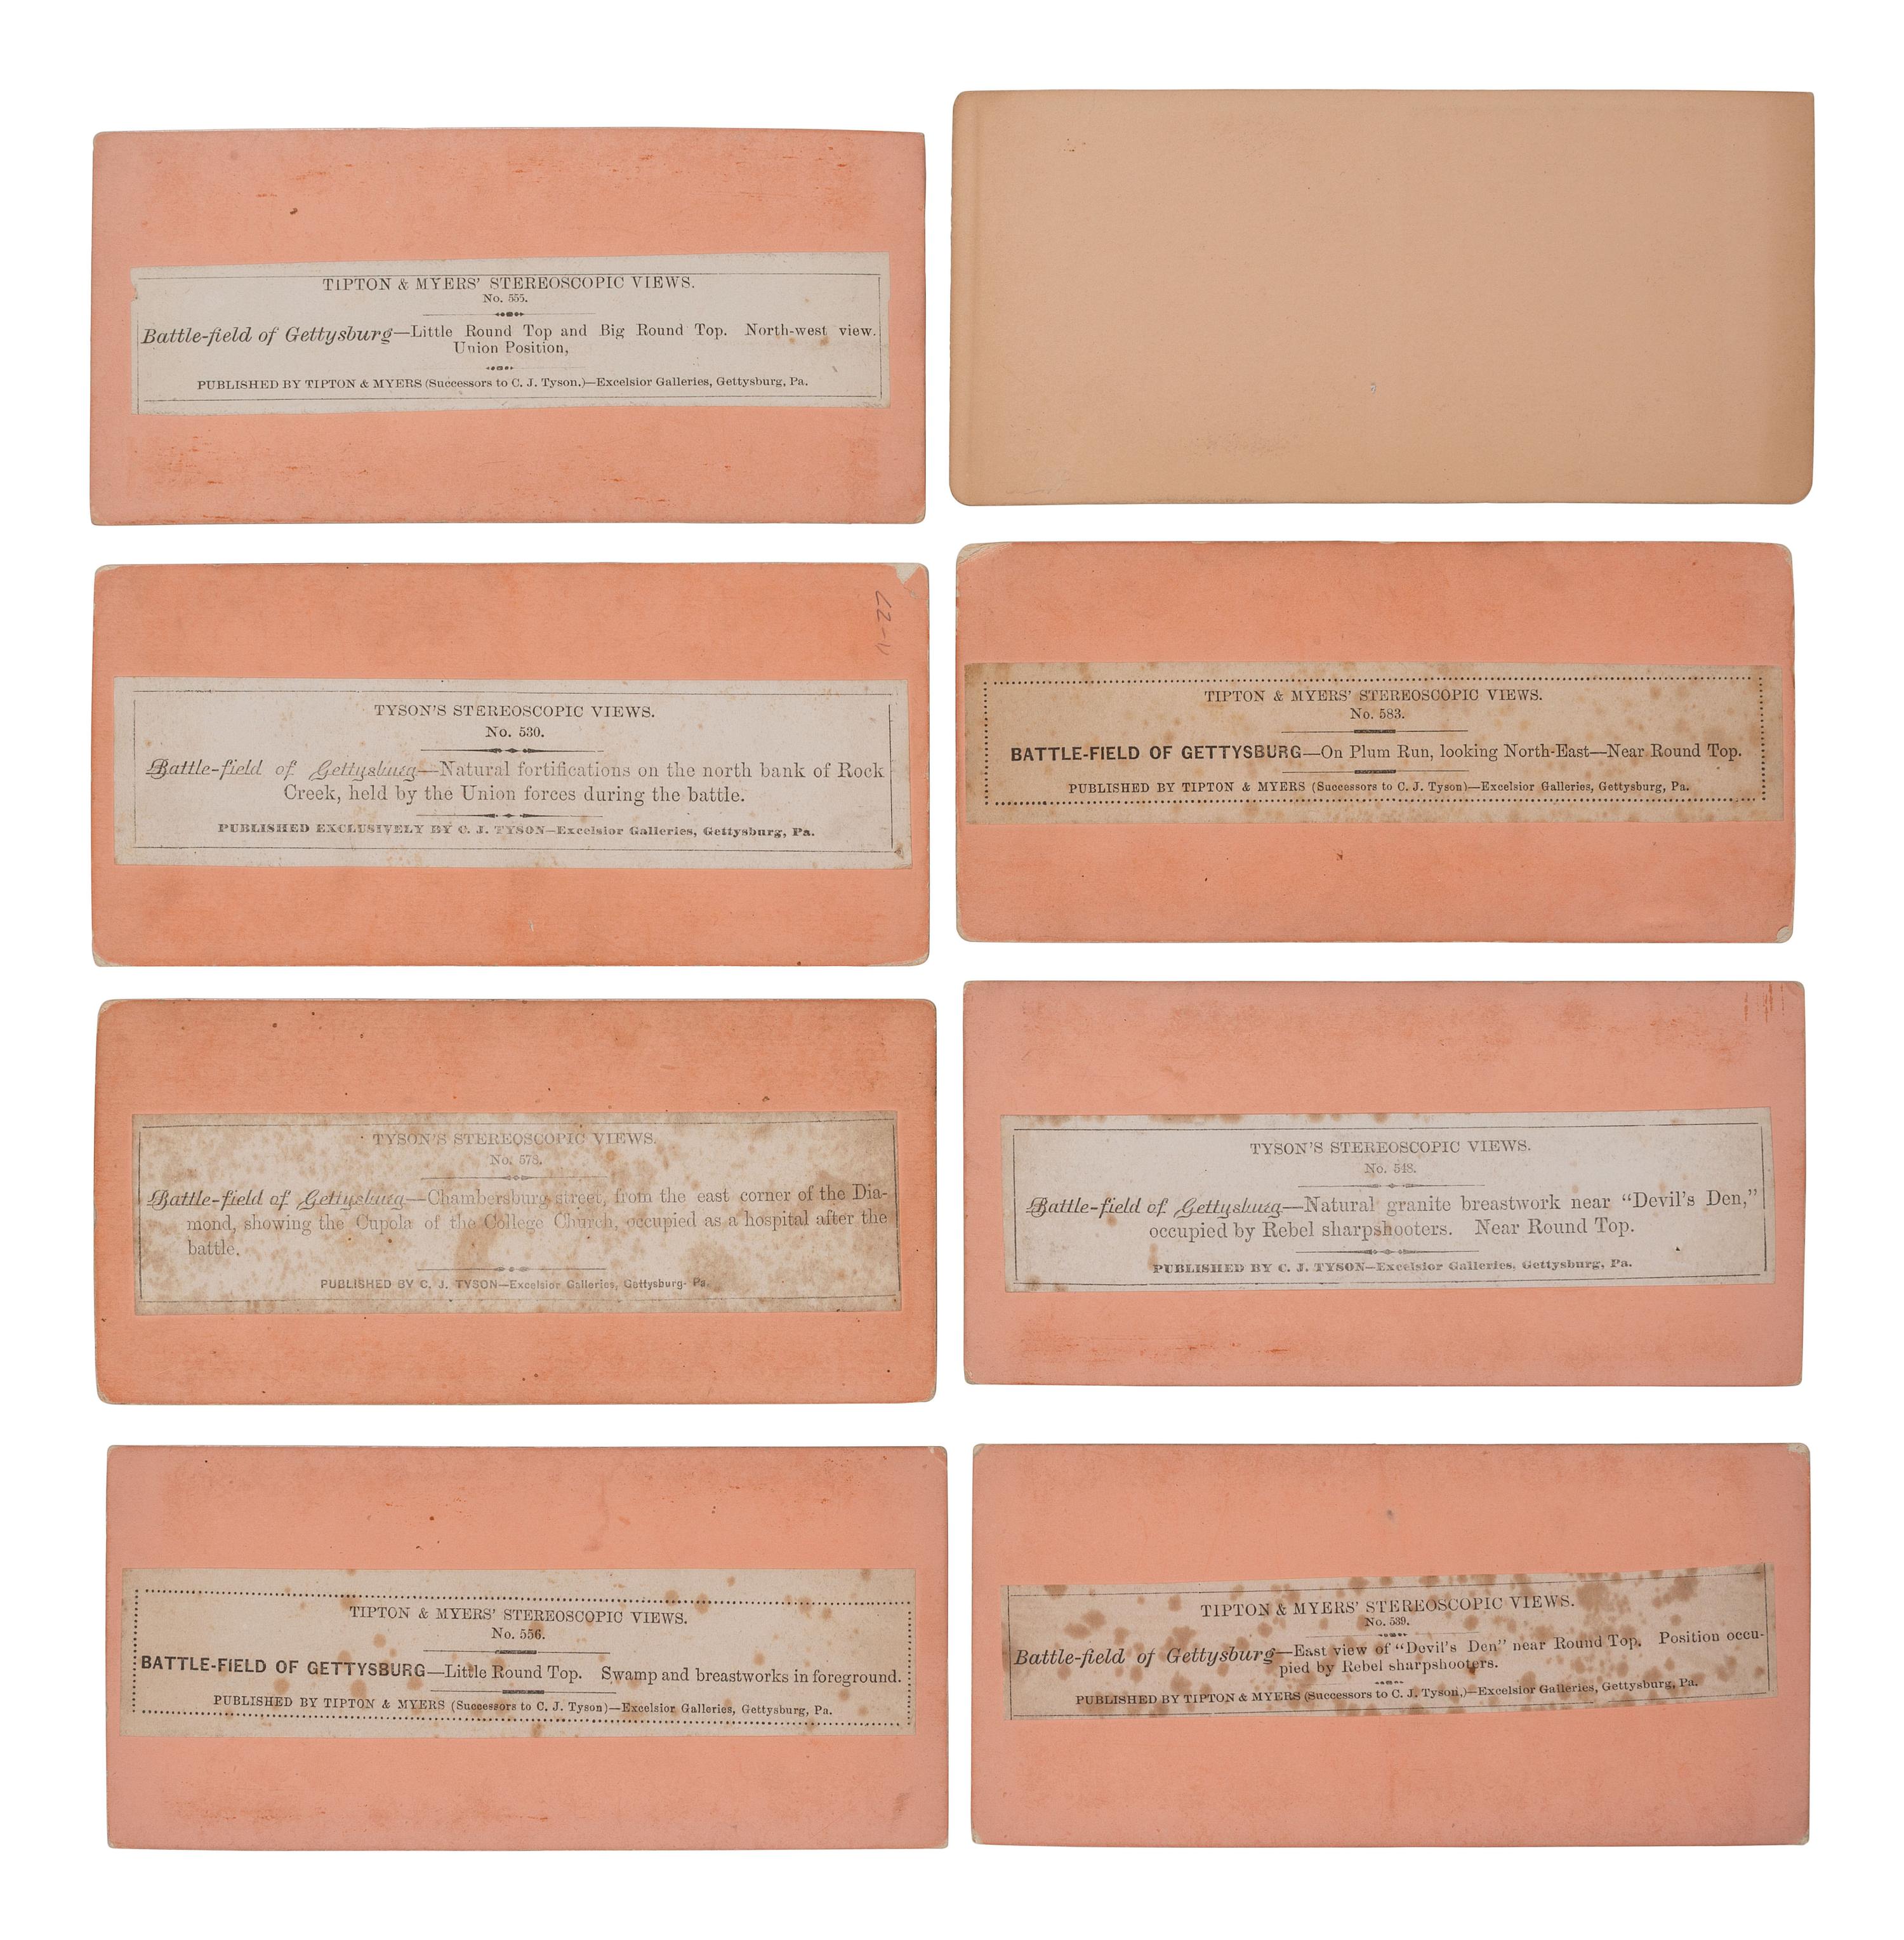 TIPTON & MYERS' STEREOSCOPIC VIEWS.
No. 555.
Battle-field of Gettysburg—Little Round Top and Big Round Top. North-west view.
Union Position,
PUBLISHED BY TIPTON & MYERS (Successors to C. J. Tyson.)—Excelsior Galleries, Gettysburg, Pa.
TYSON'S STEREOSCOPIC VIEWS.
No. 530.
Battle-field of Gettysburg—Natural fortifications on the north bank of Rock
Creek, held by the Union forces during the battle.
PUBLISHED EXCLUSIVELY BY C. J. TYSON—Excelsior Galleries, Gettysburg, Pa.
TIPTON & MYERS' STEREOSCOPIC VIEWS.
No. 583.
BATTLE-FIELD OF GETTYSBURG—On Plum Run, looking North-East—Near Round Top.
PUBLISHED BY TIPTON & MYERS (Successors to C. J. Tyson)—Excelsior Galleries, Gettysburg, Pa.
TYSON'S STEREOSCOPIC VIEWS.
No. 578.
Battle-field of Gettysburg—Chambersburg street, from the east corner of the Dia-
mond, showing the Cupola of the College Church, occupied as a hospital after the
battle.
PUBLISHED BY C. J. TYSON—Excelsior Galleries, Gettysburg- Pa.
TYSON'S STEREOSCOPIC VIEWS.
No. 548.
Battle-field of Gettysburg—Natural granite breastwork near "Devil's Den,"
occupied by Rebel sharpshooters. Near Round Top.
PUBLISHED BY C. J. TYSON—Excelsior Galleries, Gettysburg, Pa.
TIPTON & MYERS' STEREOSCOPIC VIEWS.
No. 556.
BATTLE-FIELD OF GETTYSBURG—Little Round Top. Swamp and breastworks in foreground.
PUBLISHED BY TIPTON & MYERS (Successors to C. J. Tyson)—Excelsior Galleries, Gettysburg, Pa.
TIPTON & MYERS' STEREOSCOPIC VIEWS.
No. 539.
Battle-field of Gettysburg—East view of "Devil's Den" near Round Top. Position occu-
pied by Rebel sharpshooters.
PUBLISHED BY TIPTON & MYERS (Successors to C. J. Tyson.)—Excelsior Galleries, Gettysburg, Pa.